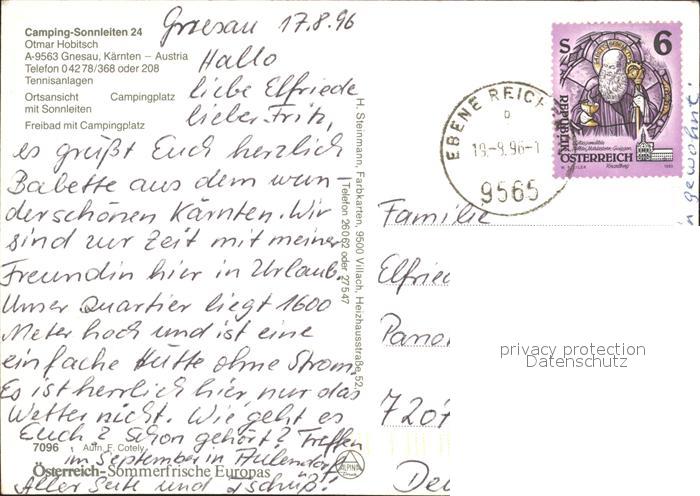 Camping-Sonnleiten 24
Otmar Hobitsch
A-9563 Gnesau, Kärnten – Austria
Telefon 0 42 78/368 oder 208
Tennisanlagen
Ortsansicht Campingplatz
mit Sonnleiten
Freibad mit Campingplatz
Gnesau 17.8.96
Hallo
liebe Elfriede
lieber Fritz,
es grüßt Euch herzlich
Babette aus dem wun-
derschönen Kärnten. Wir
sind zur Zeit mit meiner
Freundin hier in Urlaub.
Unser Quartier liegt 1600
Meter hoch und ist eine
einfache Hütte ohne Strom.
Es ist herrlich hier, nur das
Wetter nicht. Wie geht es
Euch? Schon gehört? Treffen
im September in Aulendorf
Aller Seite und Tschuß!
7096 Aufn. F. Cotely
Österreich-Sommerfrische Europas
ALPINA
H. Steinmann, Farbkarten, 9500 Villach, Heizhausstraße 52,
Telefon 26062 oder 27547
EBENE REICH
b
19.-8.96-1
9565
S 6
REPUBLIK
ÖSTERREICH
1993
Familie
Elfried
Pano
7207
Deu
privacy protection
Datenschutz